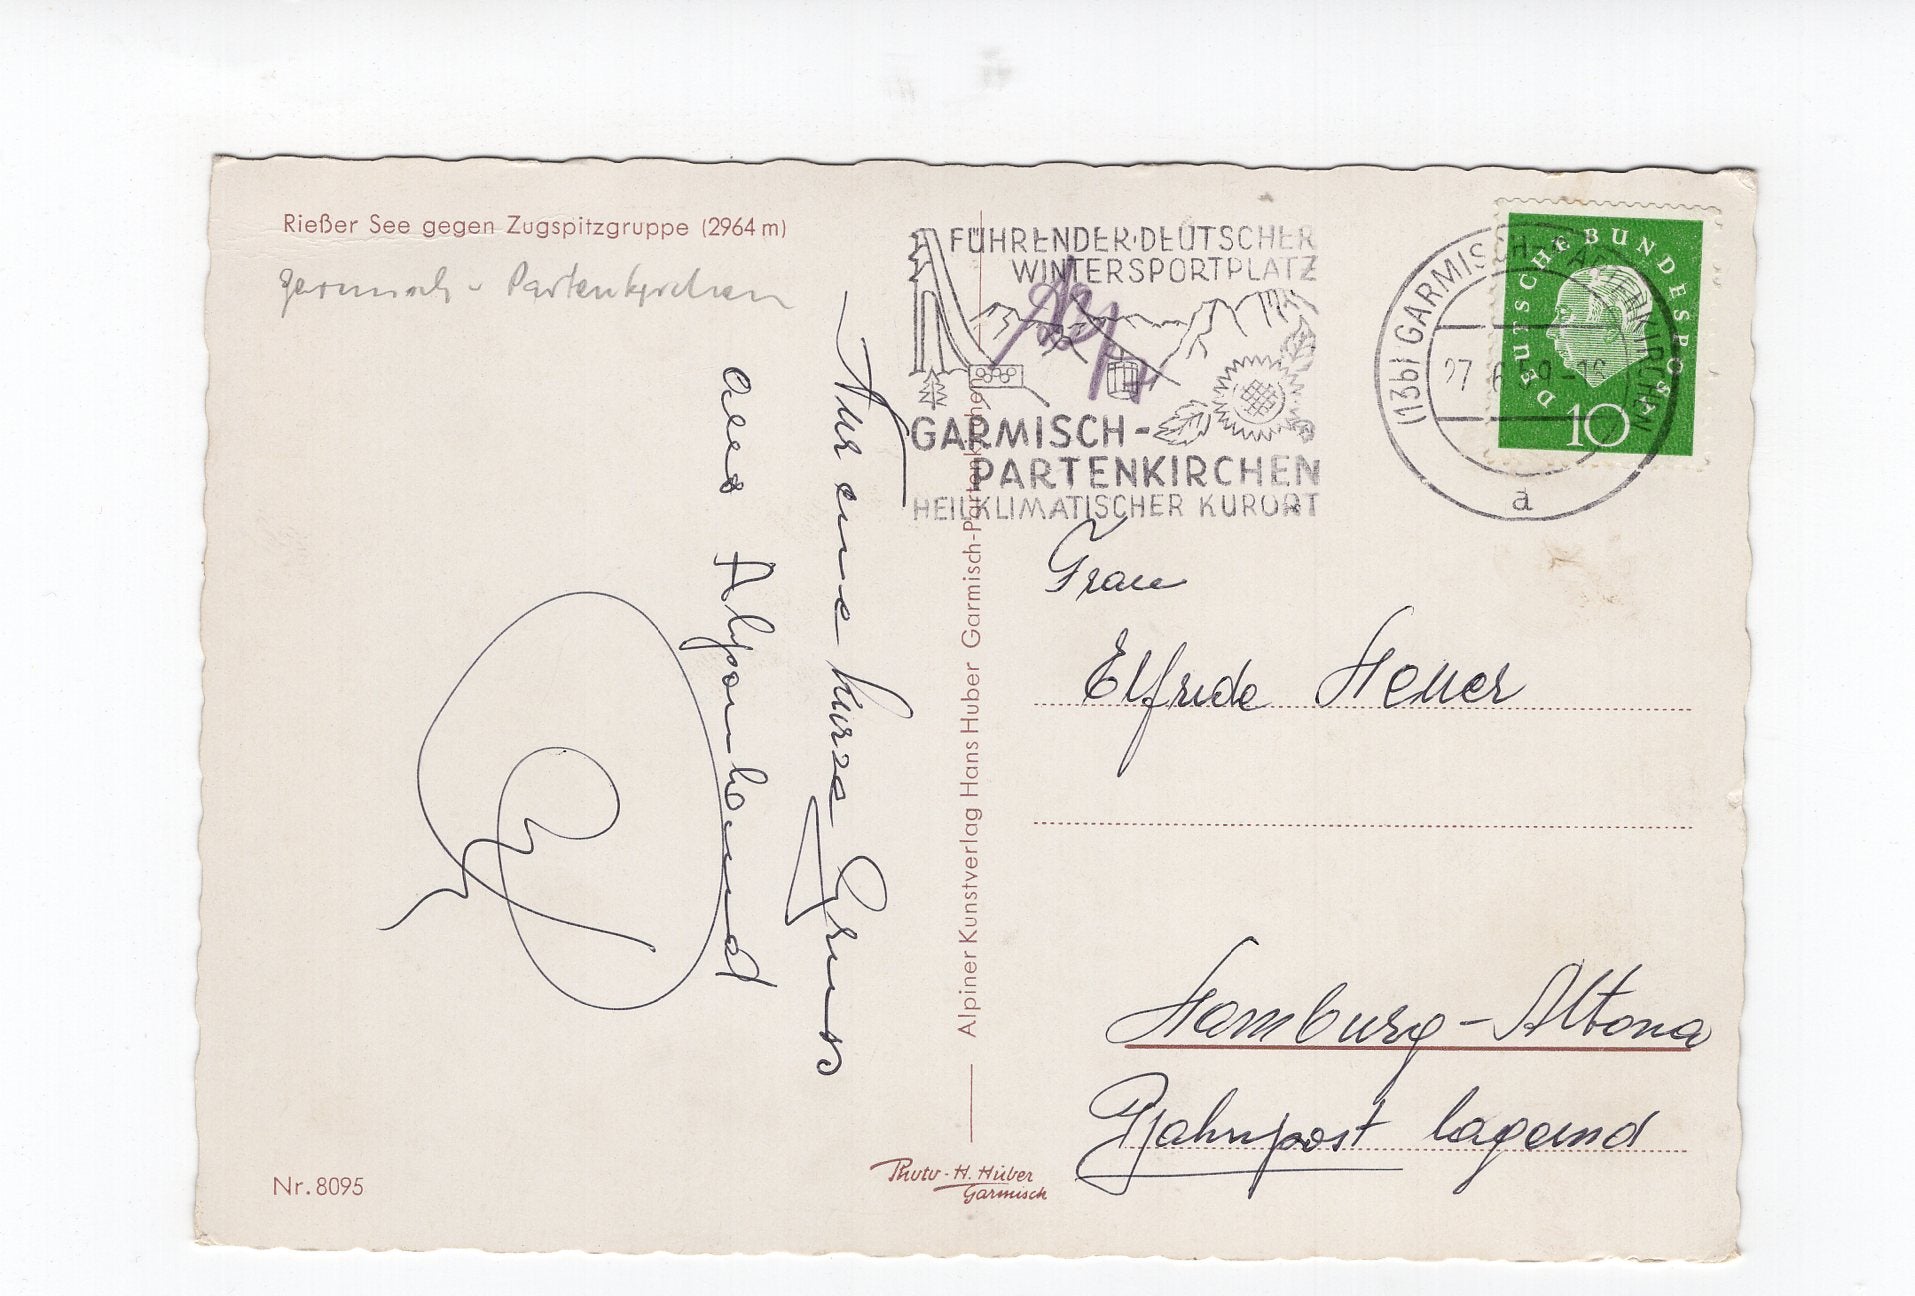 Rießer See gegen Zugspitzgruppe (2964 m)
Garmisch - Partenkirchen
Nur eine kurze Gruss
aus Alpenland
Nr. 8095
Alpiner Kunstverlag Hans Huber Garmisch-Partenkirchen
Photo - H. Huber
Garmisch
FÜHRENDER DEUTSCHER
WINTERSPORTPLATZ
GARMISCH-
PARTENKIRCHEN
HEILKLIMATISCHER KURORT
(13b) GARMISCH-PARTENKIRCHEN
27.6.59-18
a
DEUTSCHE BUNDESPOST
10
Frau
Elfride Heuer
Hamburg-Altona
Bahnpost lagernd